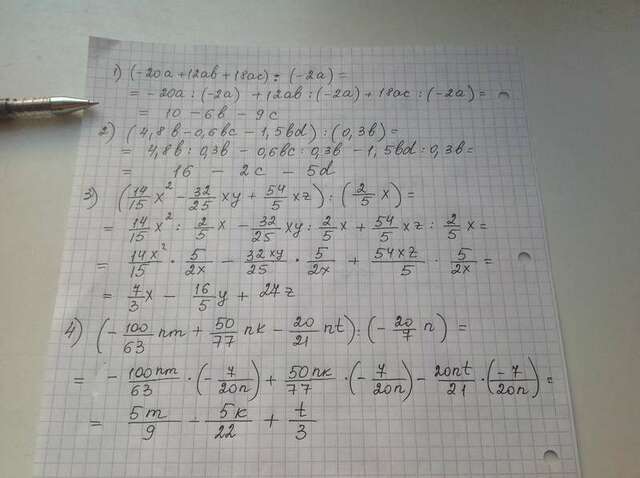 1) (-20a + 12ab + 18ac) : (-2a) =
= -20a : (-2a) + 12ab : (-2a) + 18ac : (-2a) =
= 10 - 6b - 9c
2) (4,8b - 0,6bc - 1,5bd) : (0,3b) =
= 4,8b : 0,3b - 0,6bc : 0,3b - 1,5bd : 0,3b =
= 16 - 2c - 5d
3) (14/15 x² - 32/25 xy + 54/5 xz) : (2/5 x) =
= 14/15 x² : 2/5 x - 32/25 xy : 2/5 x + 54/5 xz : 2/5 x =
= 14x²/15 · 5/2x - 32xy/25 · 5/2x + 54xz/5 · 5/2x =
= 7/3 x - 16/5 y + 27z
4) (- 100/63 nm + 50/77 nk - 20/21 nt) : (- 20/7 n) =
= - 100nm/63 · (- 7/20n) + 50nk/77 · (- 7/20n) - 20nt/21 · (-7/20n) =
= 5m/9 - 5k/22 + t/3